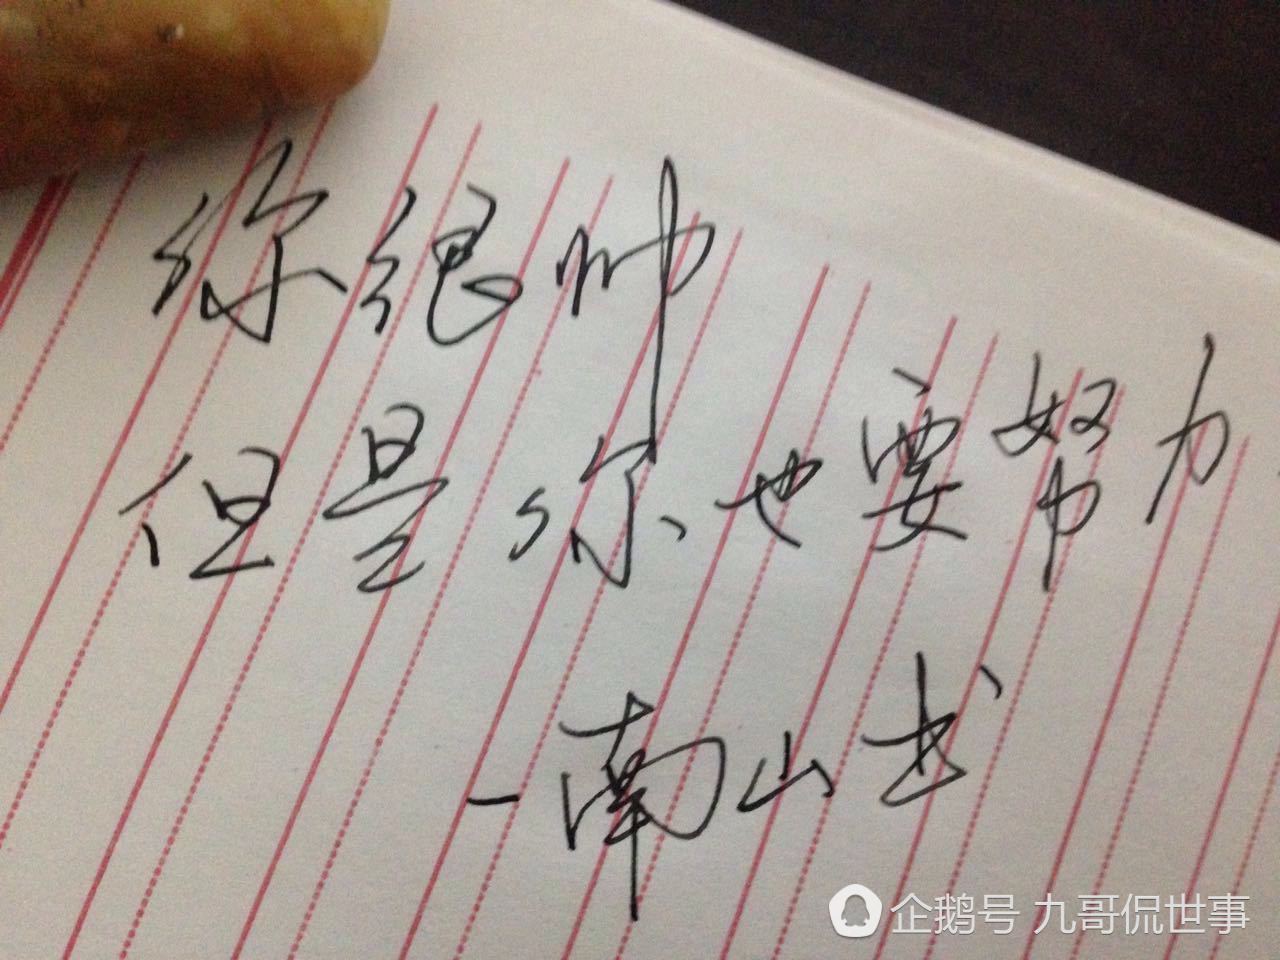 你很帅
但是你也要努力
-南山书
企鹅号 九哥侃世事